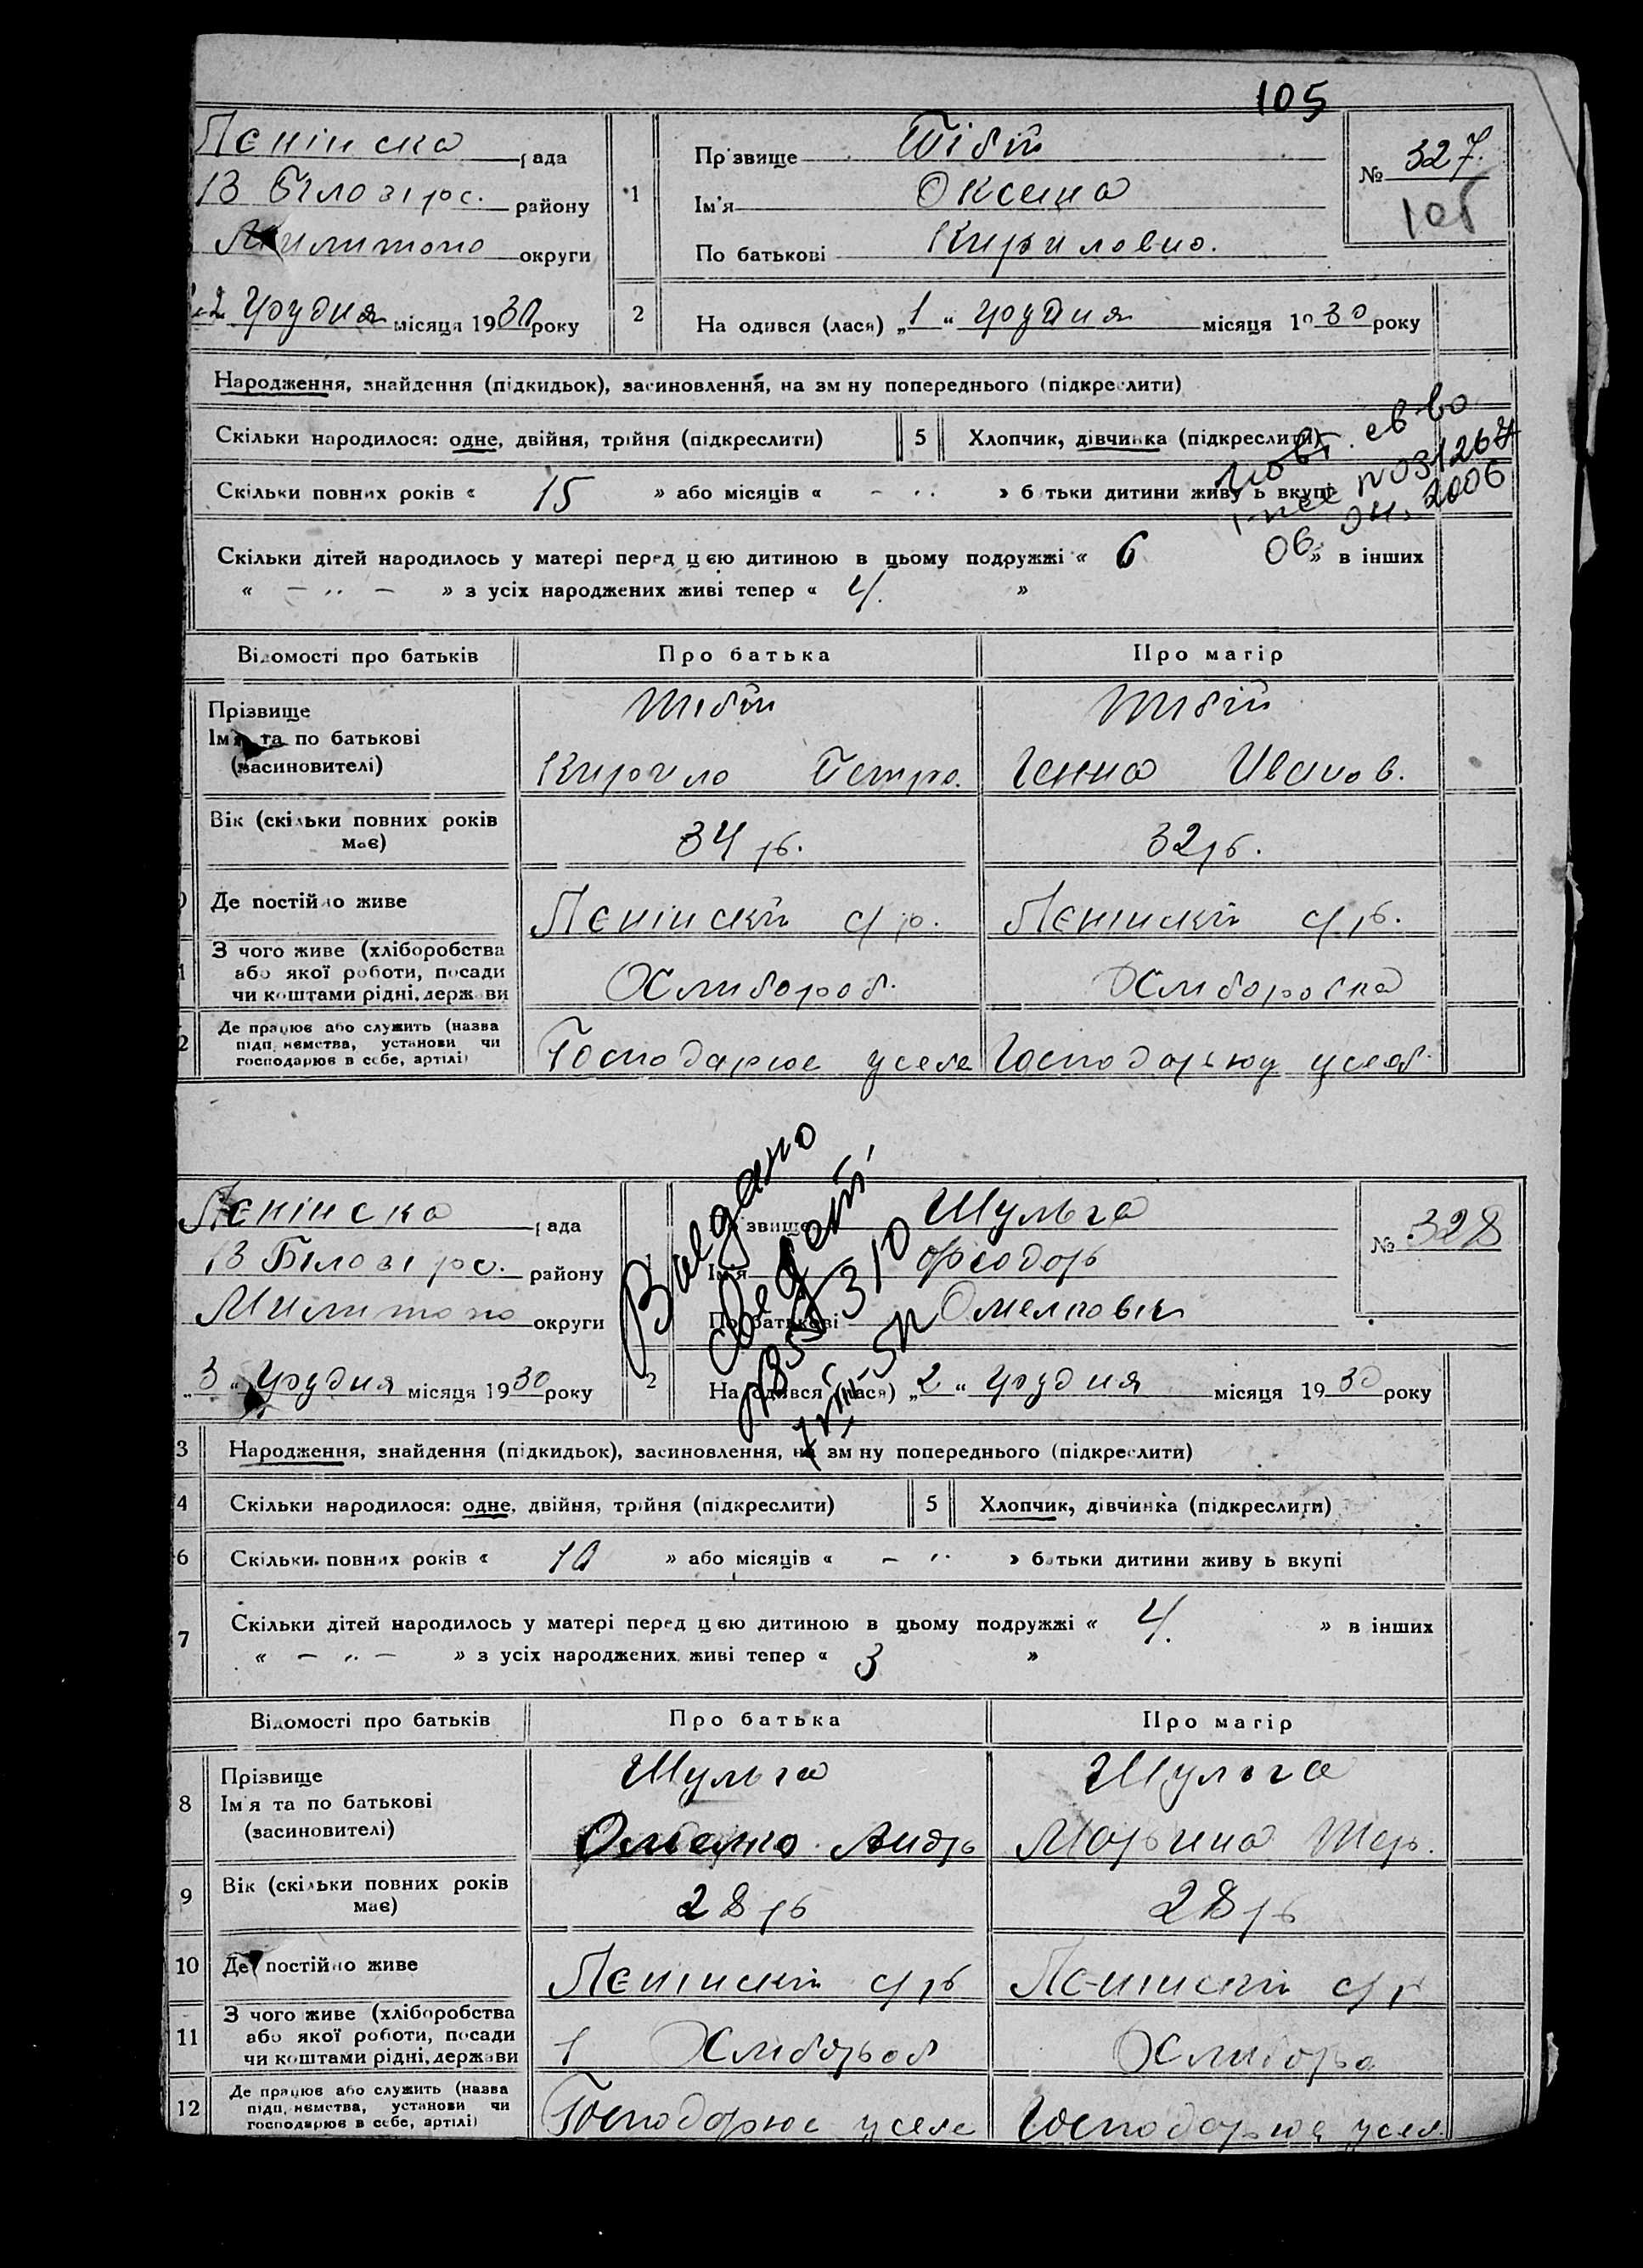 105
Ленінска рада
В Білозірс. району
Милитопо округи
2 Грудня місяця 1930 року
1
Прізвище Тібій
Ім'я Оксена
По батькові Кириловно.
№ 327.
105
2
На одився (лася) „1“ грудня місяця 1930 року
Народження, знайдення (підкидьок), засиновлення, на зм ну попереднього (підкреслити)
Скільки народилося: одне, двійня, трійня (підкреслити)
5
Хлопчик, дівчинка (підкреслити)
Скільки повних років « 15 » або місяців « – ·· » б тьки дитини живу ь вкупі
Скільки дітей народилось у матері перед цією дитиною в цьому подружжі « 6 » в інших
« – ·· – » з усіх народжених живі тепер « 4. »
повт. св во
031267
06 2006
Відомості про батьків
Про батька
Про матір
Прізвище
Ім'я та по батькові
(засиновителі)
Тібій
Кирило Петро.
Тібій
Ганна Иванов.
Вік (скільки повних років
має)
34 рб.
32 рб.
Де постійно живе
Ленінскій с/р.
Ленінскій с/рб.
З чого живе (хліборобства
або якої роботи, посади
чи коштами рідні, держави
Хлибороб.
Хлиборобка
Де працює або служить (назва
підп, иємства, установи чи
господарює в себе, артілі)
Господарює у себе
Господарьюу у себ.
Ленінско рада
В Білозірс. району
Милитопо округи
„3“ Грудня місяця 1930 року
1
Прізвище Шульга
Ім'я Феодорь
По батькові Омелковіч
№ 328
2
На одився (лася) „2“ грудня місяця 1930 року
Выдано
свидет.
310
3
Народження, знайдення (підкидьок), засиновлення, на зм ну попереднього (підкреслити)
4
Скільки народилося: одне, двійня, трійня (підкреслити)
5
Хлопчик, дівчинка (підкреслити)
6
Скільки повних років « 10 » або місяців « – ·· » батьки дитини живу ь вкупі
7
Скільки дітей народилось у матері перед цією дитиною в цьому подружжі « 4. » в інших
« – ·· – » з усіх народжених живі тепер « 3 »
Відомості про батьків
Про батька
Про матір
8
Прізвище
Ім'я та по батькові
(засиновителі)
Шульга
Омелко Андрь
Шульга
Марьина Тер.
9
Вік (скільки повних років
має)
28 рб
28 рб
10
Де постійно живе
Ленінскій с/рб
Ленінскій с/р
11
З чого живе (хліборобства
або якої роботи, посади
чи коштами рідні, держави
Хлиборьоб
Хлиборьо
12
Де працює або служить (назва
підп, иємства, установи чи
господарює в себе, артілі)
Господорює у себе
Господорьює у себ.